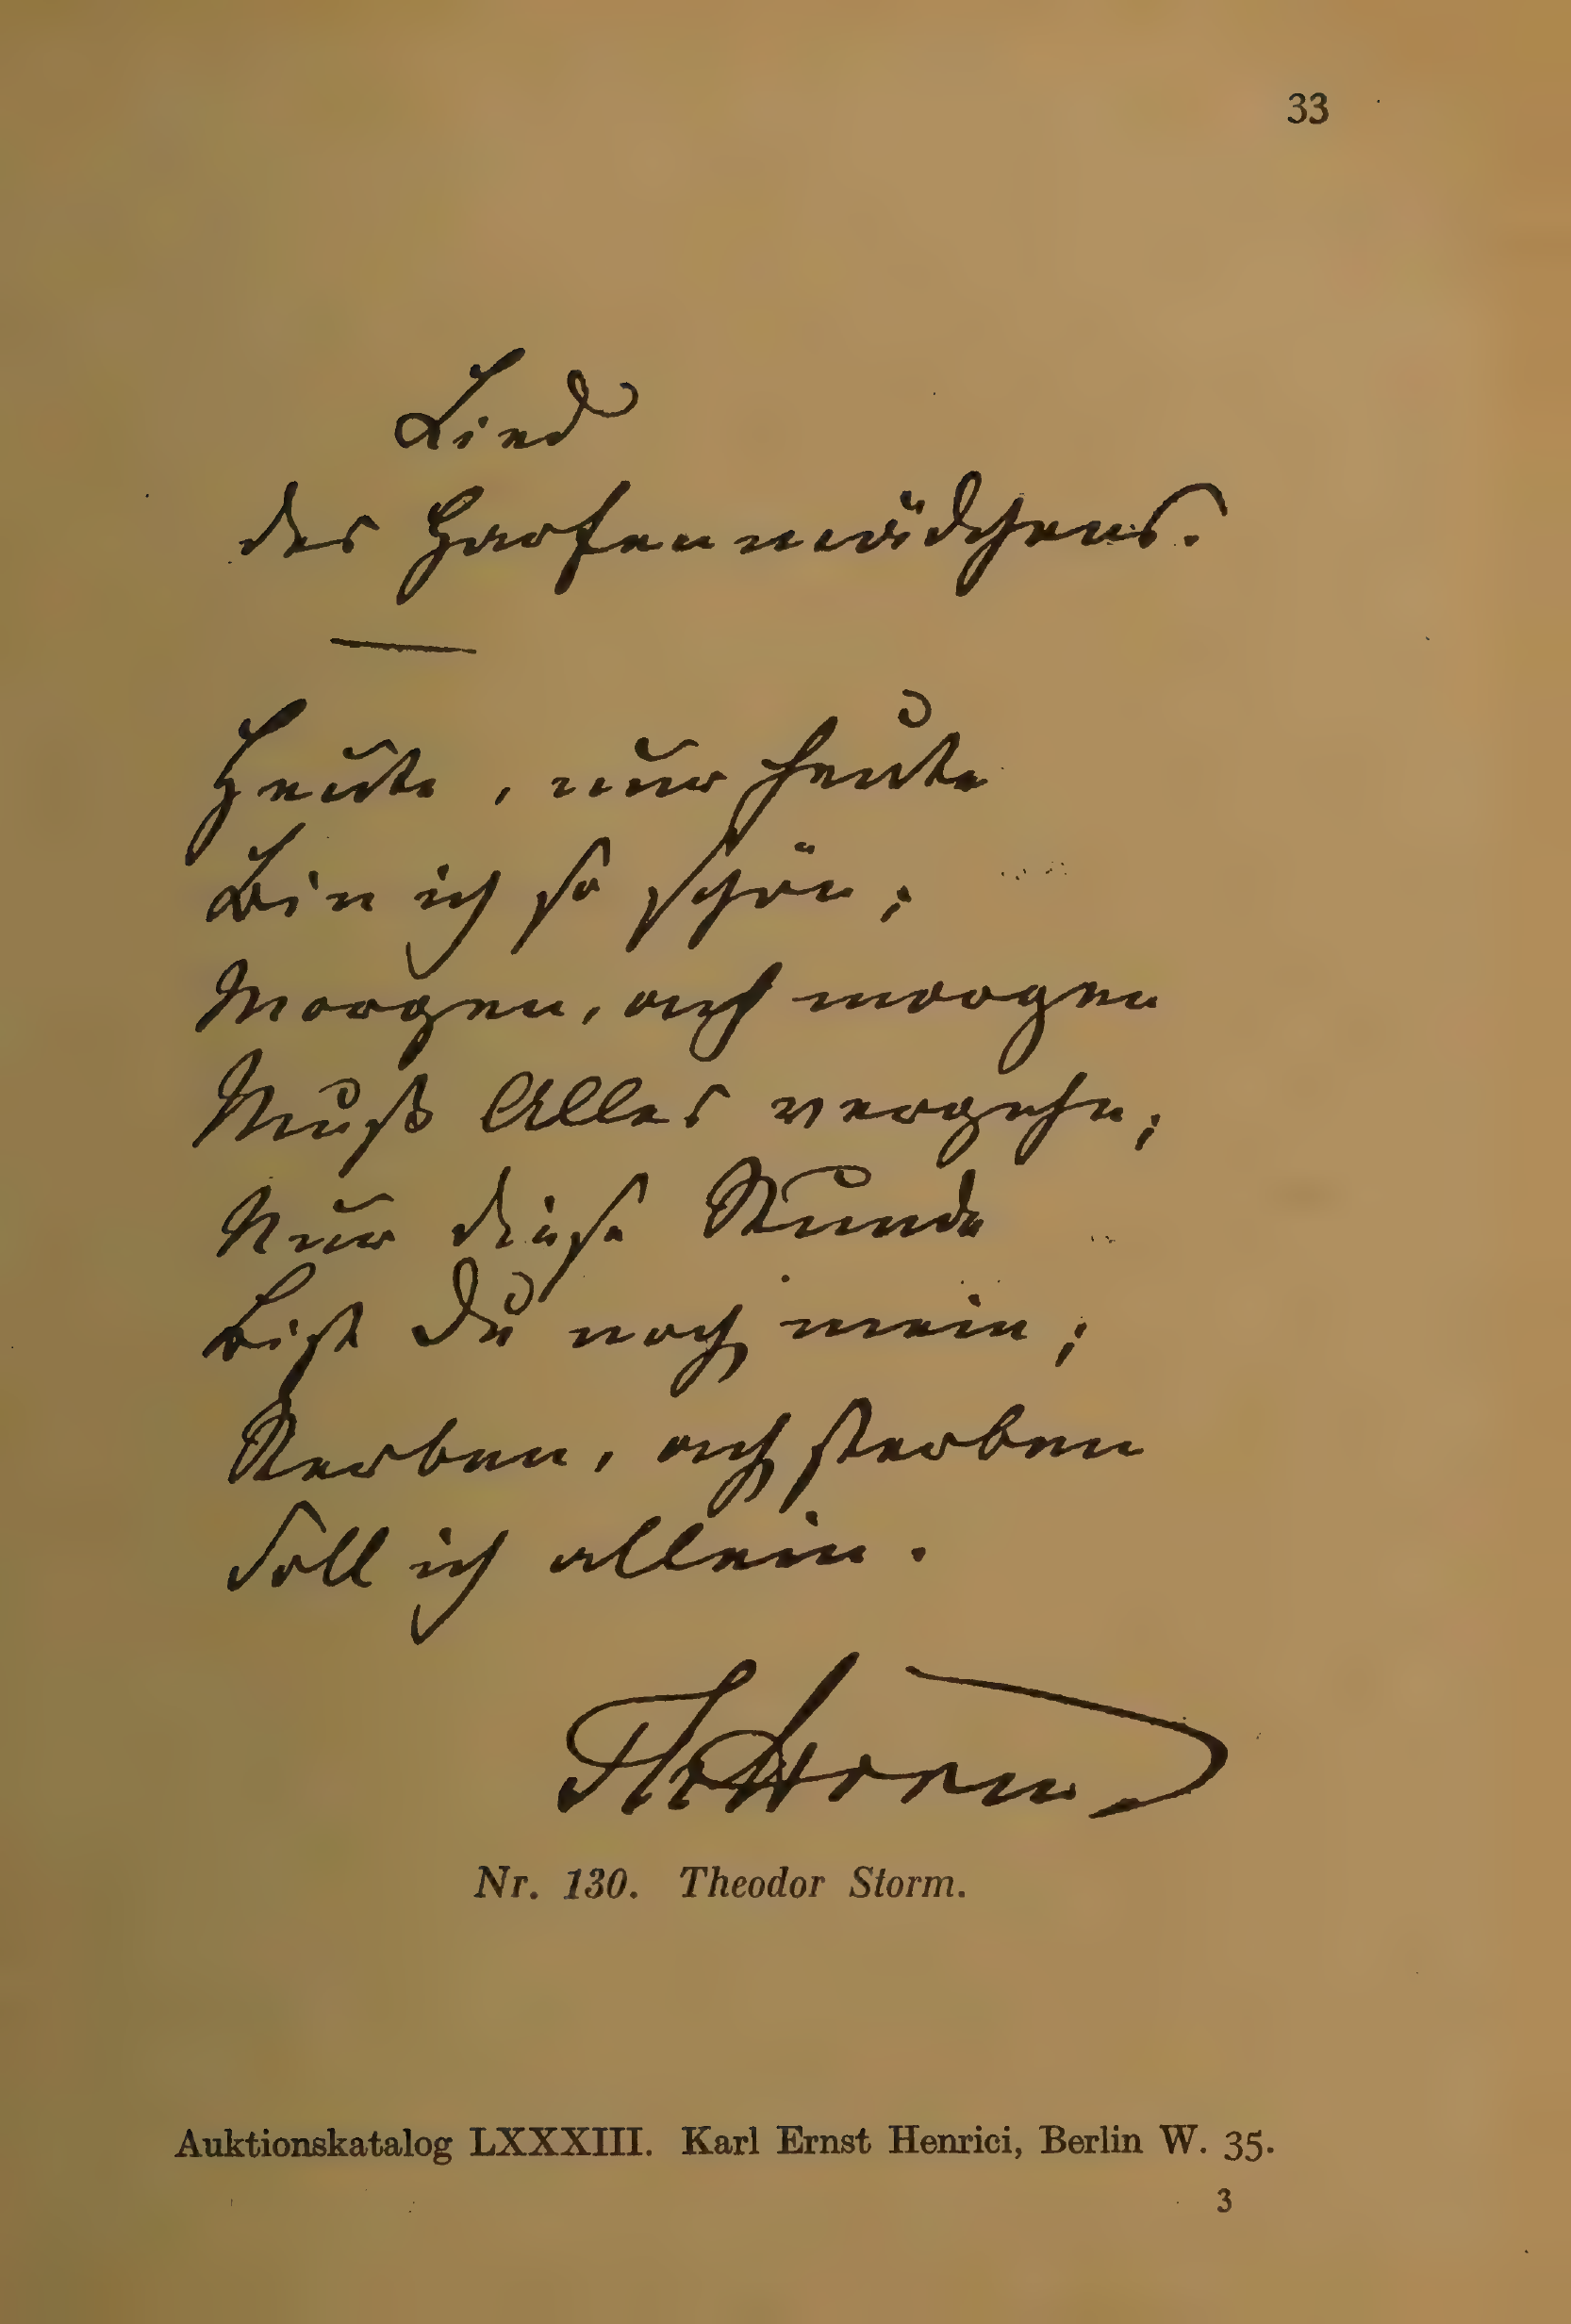 33
Lied
des Harfenmädchens.
Heute, nur heute
Bin ich so schön;
Morgen, ach morgen
Muß Alles vergehn;
Nur diese Stunde
Bist Du noch mein;
Sterben, ach sterben
Soll ich allein.
ThStorm
Nr. 130. Theodor Storm.
Auktionskatalog LXXXIII. Karl Ernst Henrici, Berlin W. 35.
3